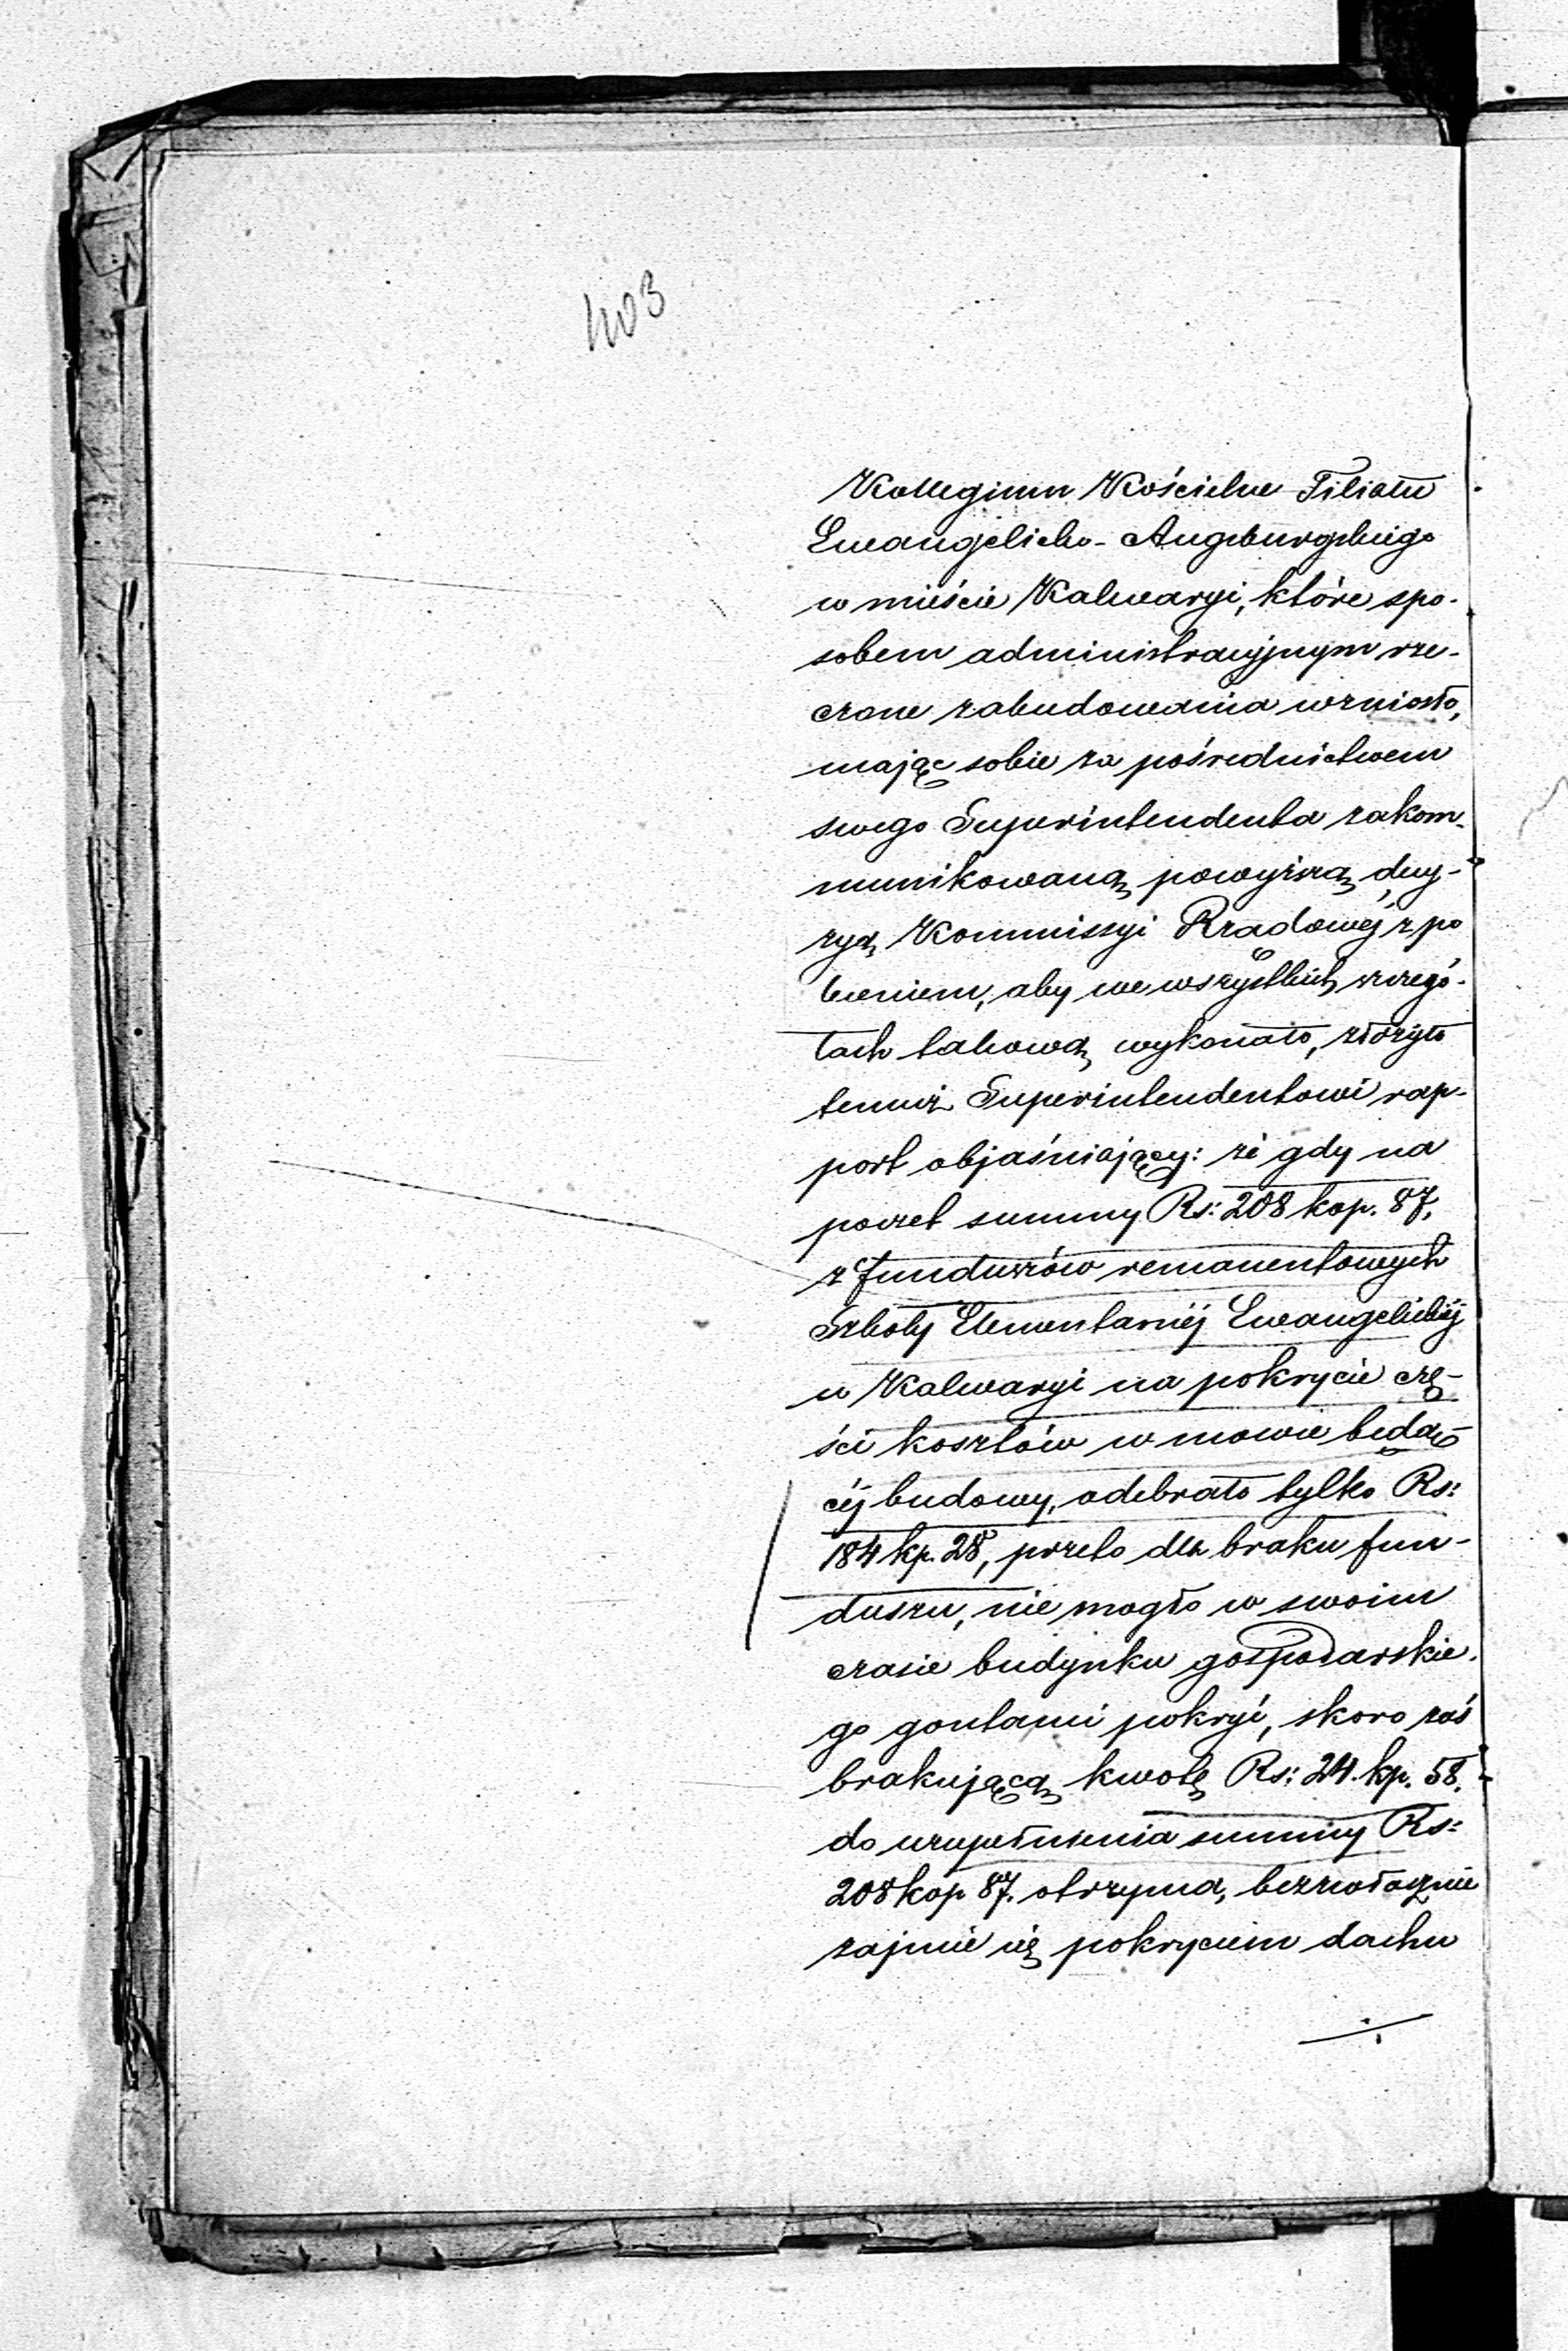 403
Kollegium Kościelne Filiału
Ewangelicko-Augsburgskiego
w mieście Kalwaryi, które spo-
sobem administracyjnym rze-
czone zabudowania wzniosło,
mając sobie za pośrednictwem
swego Superintendenta zakom-
munikowaną powyższą decy-
zyą Kommissyi Rządowéj z po
leceniem, aby we wszystkich szczegó-
łach takową wykonało, złożyło
temuż Superintendentowi rap-
port objaśniający: że gdy na
poczet summy Rs: 208 kop. 87,
z funduszów remanentowych
Szkoły Elementarnéj Ewangelickiéj
w Kalwaryi na pokrycie czę-
ści kosztów w mowie będą-
céj budowy, odebrało tylko Rs:
184 kp. 28, przeto dla braku fun-
duszu, nie mogło w swoim
czasie budynku gospodarskie-
go gontami pokryć, skoro zaś
brakującą kwotę Rs: 24. kp. 58.
do uzupełnienia summy Rs:
208 kop 87. otrzyma, bezzwłocznie
zajmie się pokryciem dachu